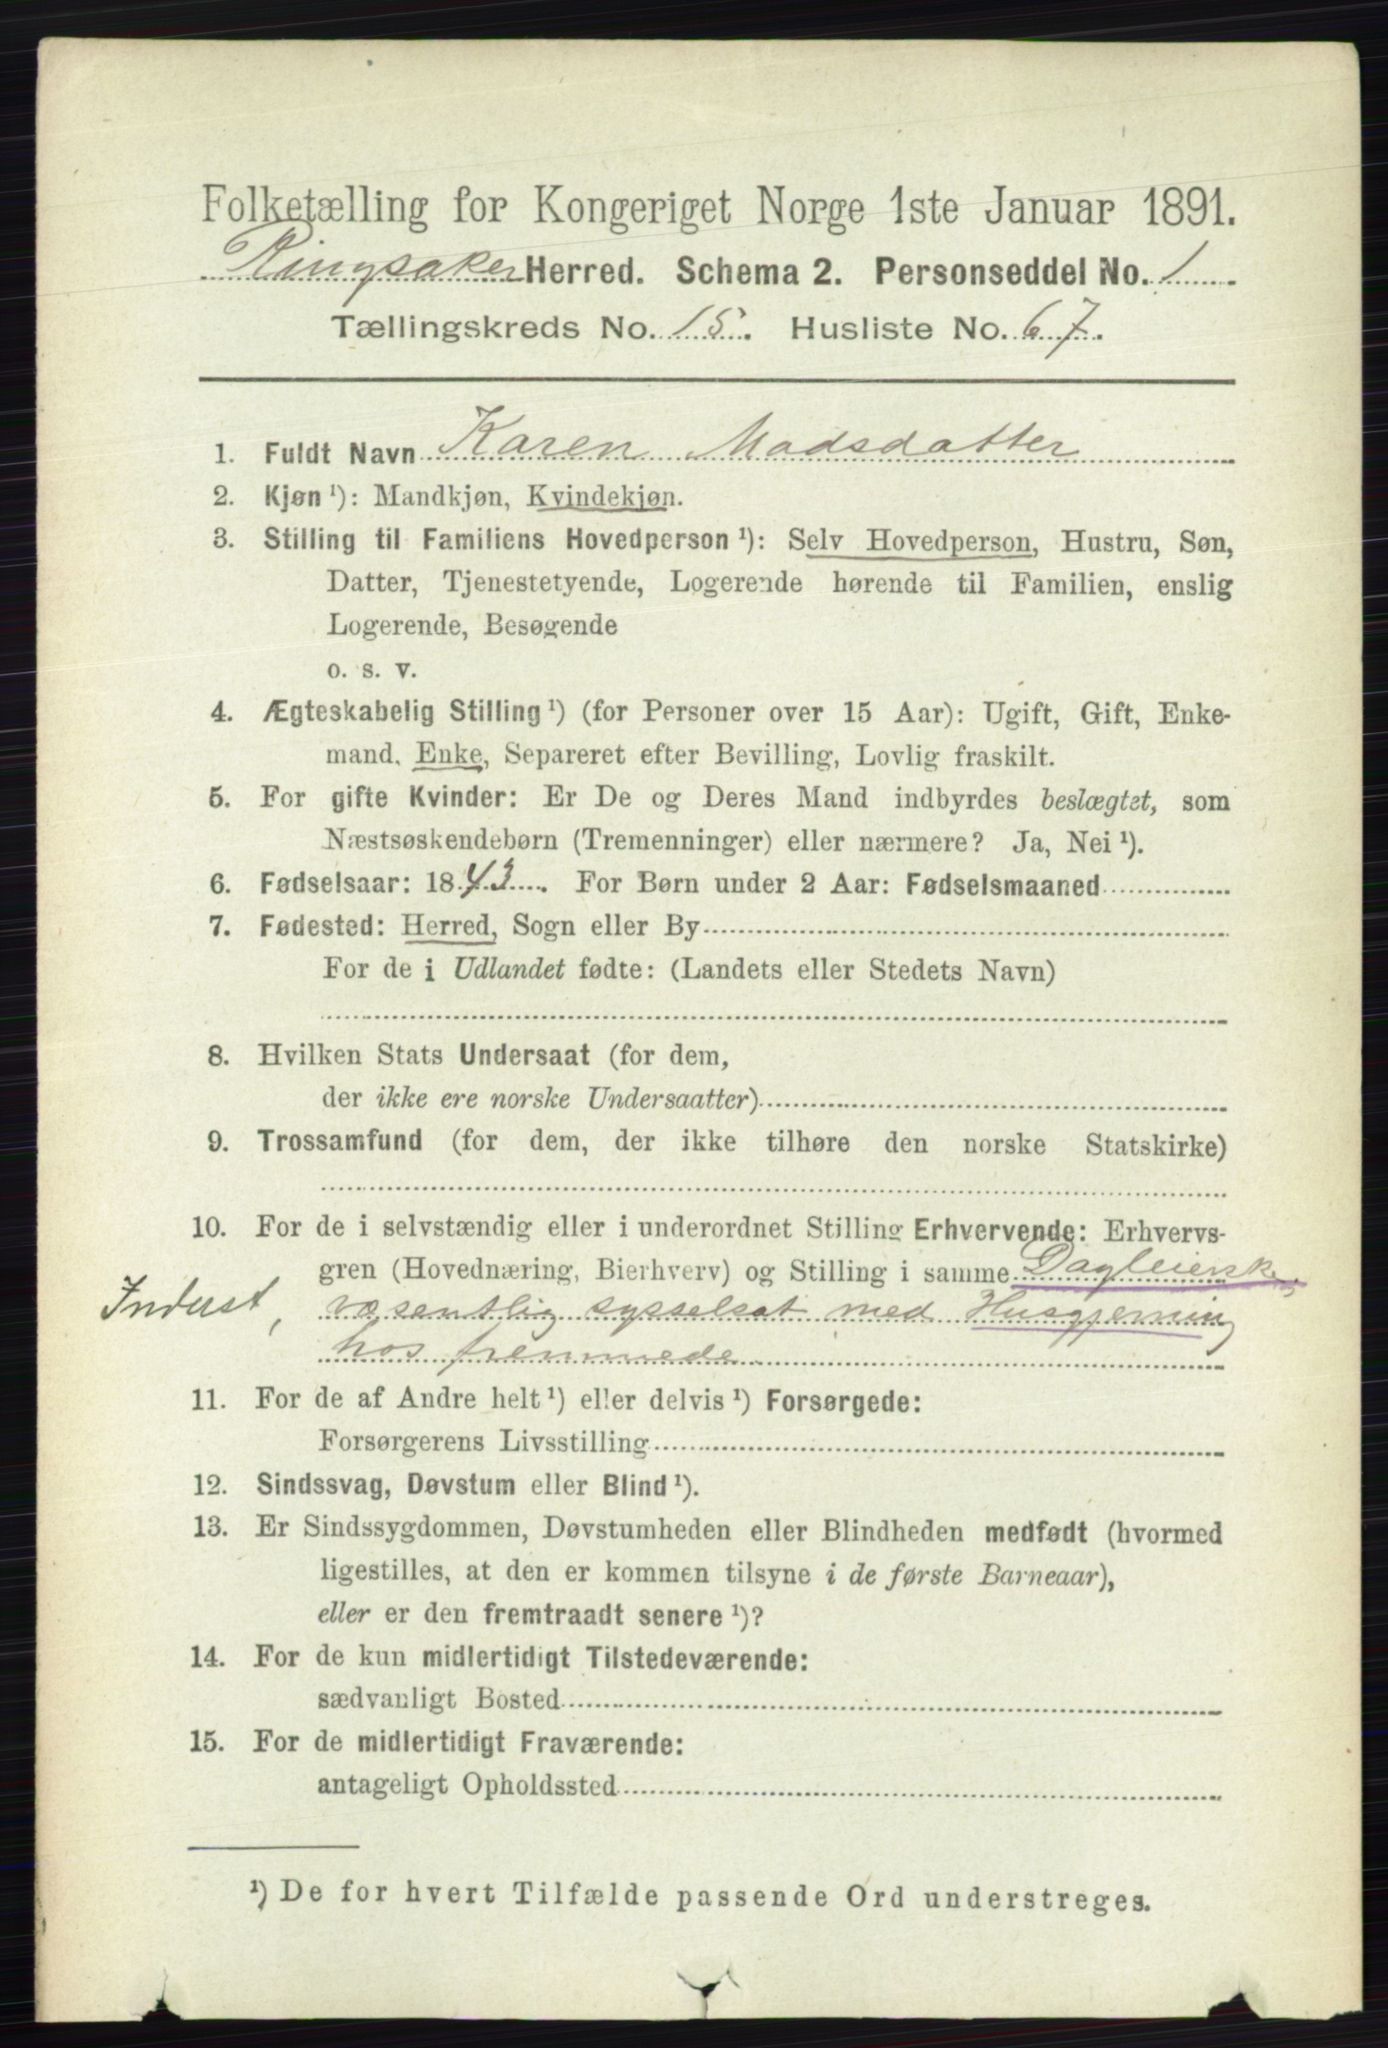 Folketælling for Kongeriget Norge 1ste Januar 1891.
Ringsaker Herred. Schema 2. Personseddel No. 1
Tællingskreds No. 15. Husliste No. 67.
1. Fuldt Navn Karen Madsdatter
2. Kjøn ¹): Mandkjøn, Kvindekjøn.
3. Stilling til Familiens Hovedperson ¹): Selv Hovedperson, Hustru, Søn,
Datter, Tjenestetyende, Logerende hørende til Familien, enslig
Logerende, Besøgende
o. s. v.
4. Ægteskabelig Stilling ¹) (for Personer over 15 Aar): Ugift, Gift, Enke-
mand, Enke, Separeret efter Bevilling, Lovlig fraskilt.
5. For gifte Kvinder: Er De og Deres Mand indbyrdes beslægtet, som
Næstsøskendebørn (Tremenninger) eller nærmere? Ja, Nei ¹).
6. Fødselsaar: 1843. For Børn under 2 Aar: Fødselsmaaned
7. Fødested: Herred, Sogn eller By
For de i Udlandet fødte: (Landets eller Stedets Navn)
8. Hvilken Stats Undersaat (for dem,
der ikke ere norske Undersaatter)
9. Trossamfund (for dem, der ikke tilhøre den norske Statskirke)
10. For de i selvstændig eller i underordnet Stilling Erhvervende: Erhvervs-
gren (Hovednæring, Bierhverv) og Stilling i samme Dagleierske,
Inderst, væsentlig sysselsat med Husgjerning
hos fremmede
11. For de af Andre helt ¹) eller delvis ¹) Forsørgede:
Forsørgerens Livsstilling
12. Sindssvag, Døvstum eller Blind ¹).
13. Er Sindssygdommen, Døvstumheden eller Blindheden medfødt (hvormed
ligestilles, at den er kommen tilsyne i de første Barneaar),
eller er den fremtraadt senere ¹)?
14. For de kun midlertidigt Tilstedeværende:
sædvanligt Bosted
15. For de midlertidigt Fraværende:
antageligt Opholdssted
¹) De for hvert Tilfælde passende Ord understreges.